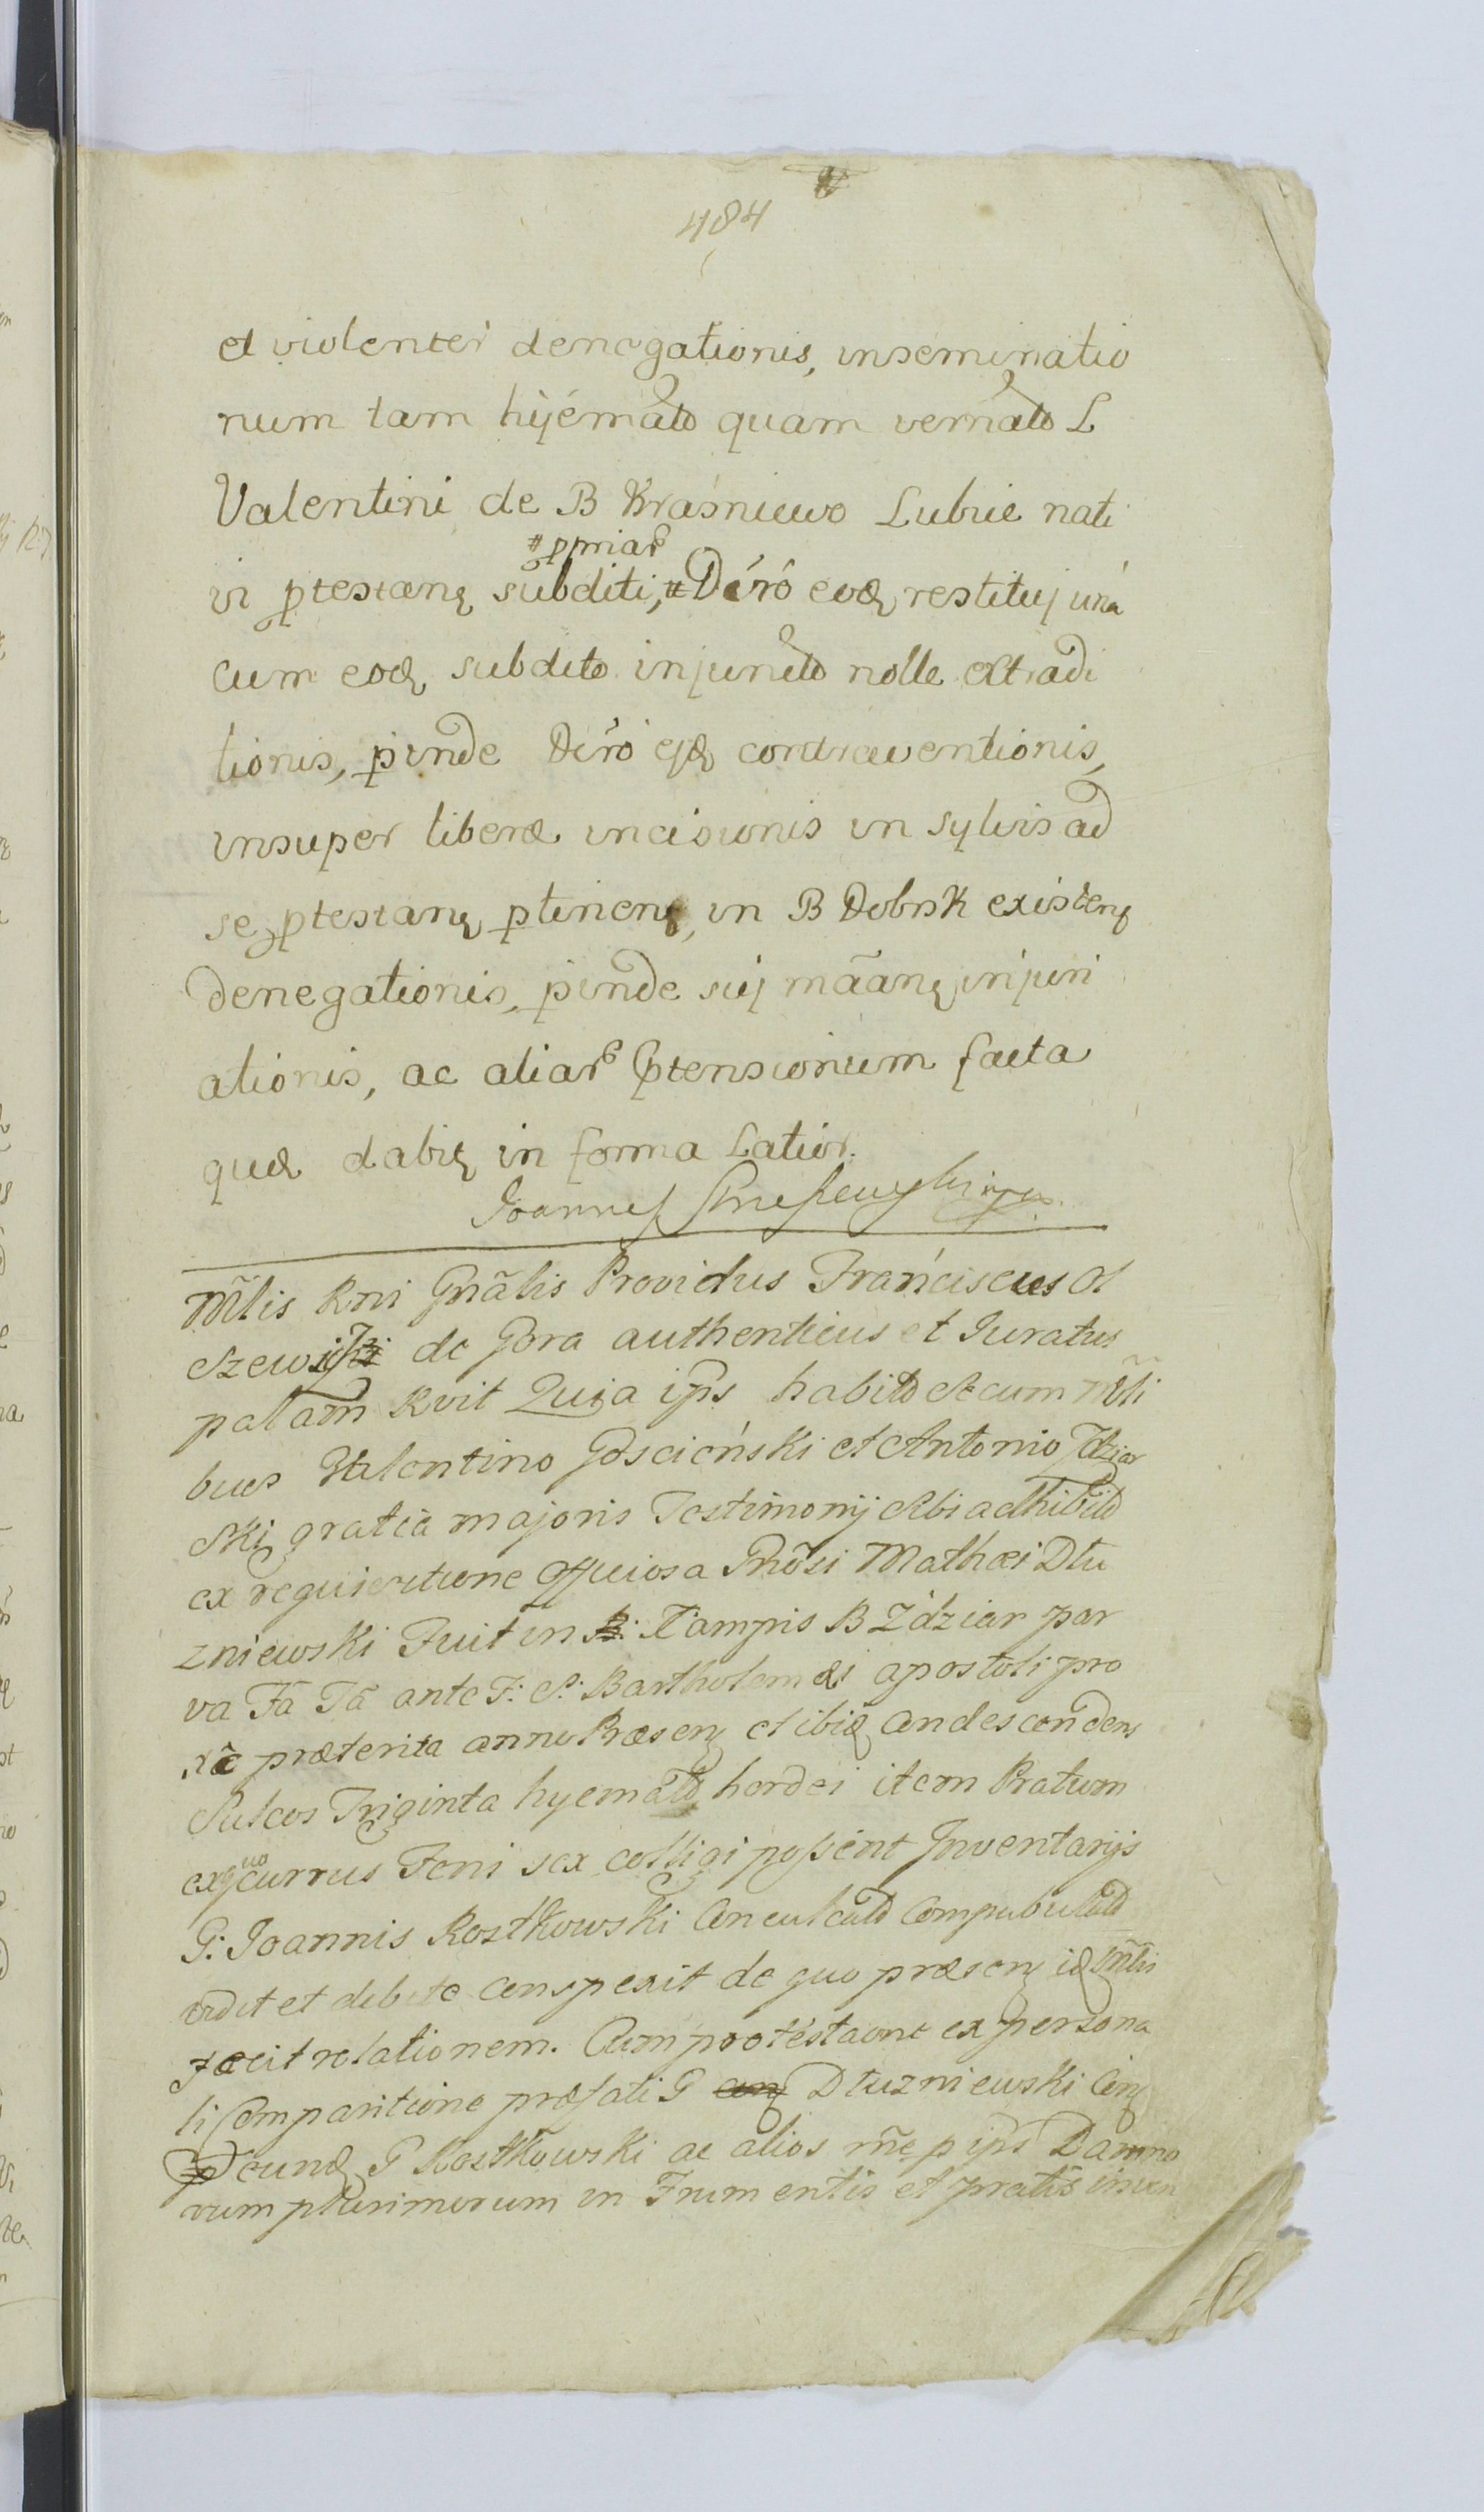 484
et violenter denegationis, inseminatio
num tam hyemalō quam vernalō L
Valentini de B Kraśniewo Lubie nati
# ppriar
vi ptestanę subditi, # Dcró eoq restituj uná
cum eoq subdito injunctō nolle extradi
tionis, pinde Dcró ejq contraventionis,
insuper liberæ incisionis in sylvis ad
se ptestanę ptinenę, in B Dobrsk existenę
denegationis, pinde suj māanę injuri
ationis, ac aliar ptensionum facta
quæ dabię in forma Latior.
Joannes
Mlis Rni Gnālis Providus Franciscus Ol
szewski de Gora authenticus et Juratus
palam Rvit Quia ips habitō secum Nbli
bus Valentino Gościeński et Antonio Zdziar
ski gratia majoris Testimonij sibi adhibitō
ex requisitione officiosa Gnōsi Mathæi Dłu
zniewski Fuit in Campis B Zdziar par
va Fā Tā ante F: S: Bartholemæi apostoli pro
xē præterita anno Præsenę et ibiq Condescendenę
Sulcos Triginta hyemalō hordei item Pratum
ex quo currus Feni sex colligi possent Inventarijs
G: Joannis Rostkowski Conculcatō Compabulatō
vidit et debite Conspexit de quo præsenę iq Mlis
fecit relationem. Cum protestaone ex persona
li Comparitione præfati G Dłuzniewski Conę
eunq G Rostkowski ac alios rñe p ips Damno
rum plurimorum in Frumentis et pratis